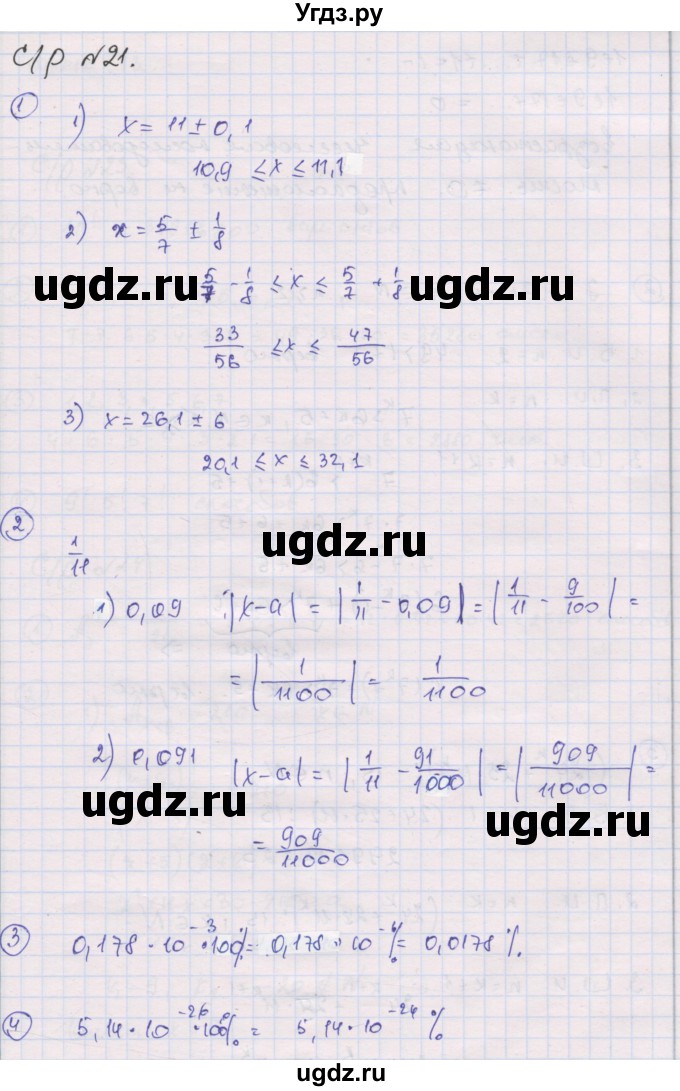 Угдз.ру
С/р №21.
① 1) x = 11 ± 0,1
10,9 ≤ x ≤ 11,1
2) x = 5/7 ± 1/8
5/7 - 1/8 ≤ x ≤ 5/7 + 1/8
ugdz.ru ugdz.ru
33/56 ≤ x ≤ 47/56
3) x = 26,1 ± 6
20,1 ≤ x ≤ 32,1
② 1/11
ugdz.ru
1) 0,09 |x-a| = |1/11 - 0,09| = |1/11 - 9/100| =
= |1/1100| = 1/1100
2) 0,091 |x-a| = |1/11 - 91/1000| = |909/11000| =
ugdz.ru ugdz.ru
= 909/11000
③ 0,178 · 10^-3 · 100% = 0,178 · 10^-1 % = 0,0178 %.
④ 5,14 · 10^-26 · 100% = 5,14 · 10^-24 %
ugdz.ru